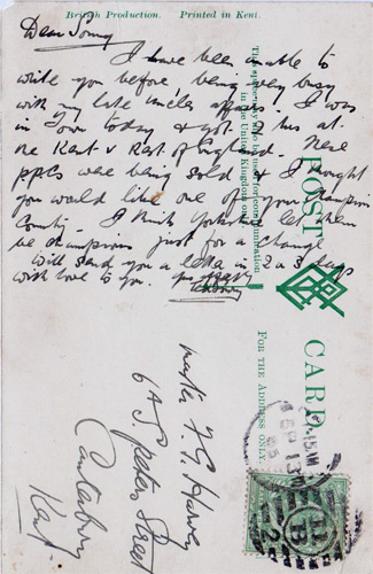 British Production. Printed in Kent.
Dear Sonny
I have been unable to
write you before being very busy
with my late uncles affairs. I was
in Town today & got 2 hrs at
the Kent v Rest of England. These
ppcs were being sold & I thought
you would like one of your Champion
County. I think Yorkshire let them
be champions just for a change
Will send you a letter in 2 or 3 days
with love to you.
This space may also be used for communication
in the United Kingdom only.
POST CARD
FOR THE ADDRESS ONLY.
Master F. G. Harvey
6A S. Peters Street
Canterbury
Kent
SP 13